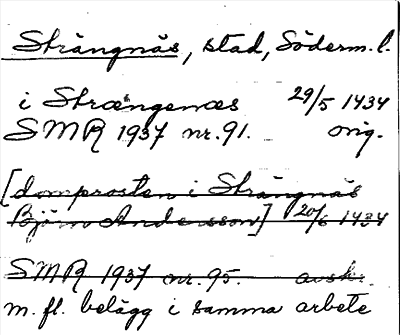 Strängnäs, stad, Söderm. l.
i Strængenæs 29/5 1434
SMR 1937 nr. 91. orig.
[domprosten i Strängnäs
Björn Andersson] 20/6 1434
SMR 1937 nr. 95. avskr.
m. fl. belägg i samma arbete